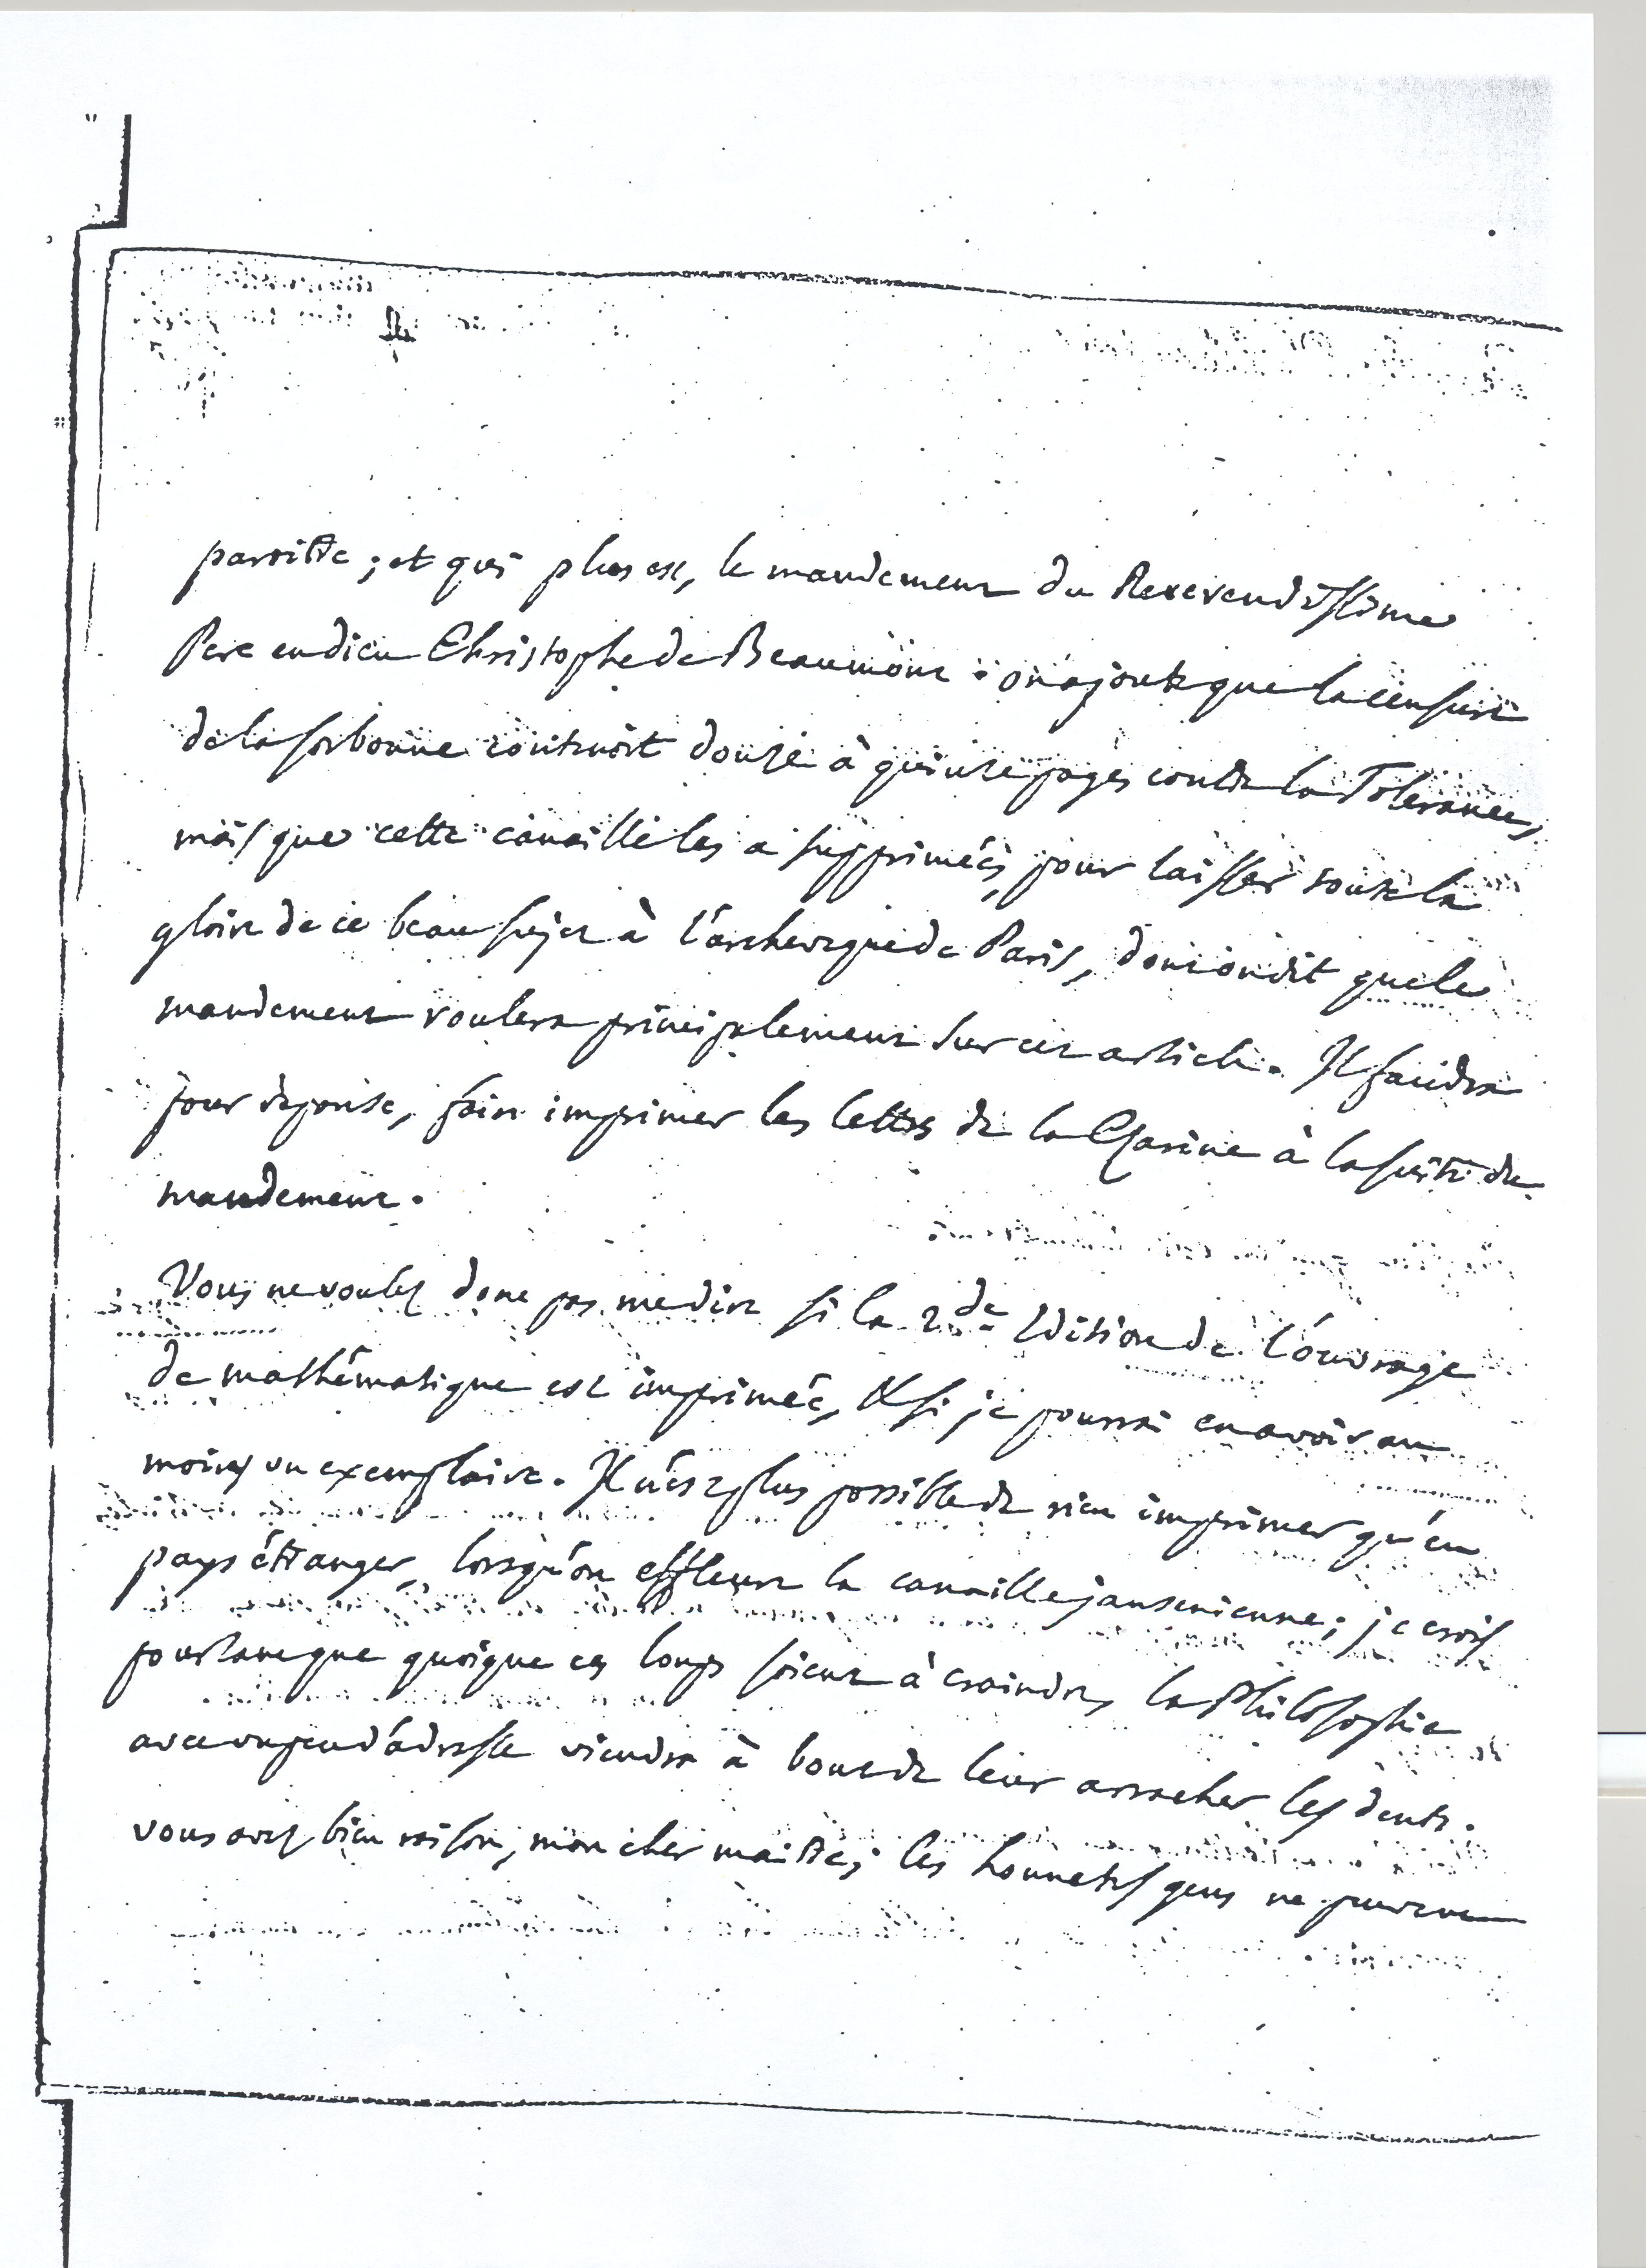 paroitre ; et qui plus est, le mandement du Reverendissime
Pere en dieu Christophe de Beaumont : on ajoute que la censure
de la sorbonne contenoit douze à quinze pages contre la Tolerance,
mais que cette canaille les a supprimées, pour laisser toute la
gloire de ce beau sujet à l'archeveque de Paris, dont on dit que le
mandement roulera principalement sur cet article. Il faudra
pour reponse, faire imprimer les lettres de la Czarine à la suite du
mandement.
Vous ne voulez donc pas me dire si la 2de Edition de l'ouvrage
de mathématique est imprimée, & si je pourrai en avoir au
moins un exemplaire. Il n'est plus possible de rien imprimer qu'en
pays étranger, lorsqu'on effleure la canaille jansenienne ; je crois
pourtant que quoique ces loups soient à craindre, la Philosophie
avec un peu d'adresse viendra à bout de leur arracher les dents.
vous avez bien raison, mon cher maitre ; les honnetes gens ne peuvent